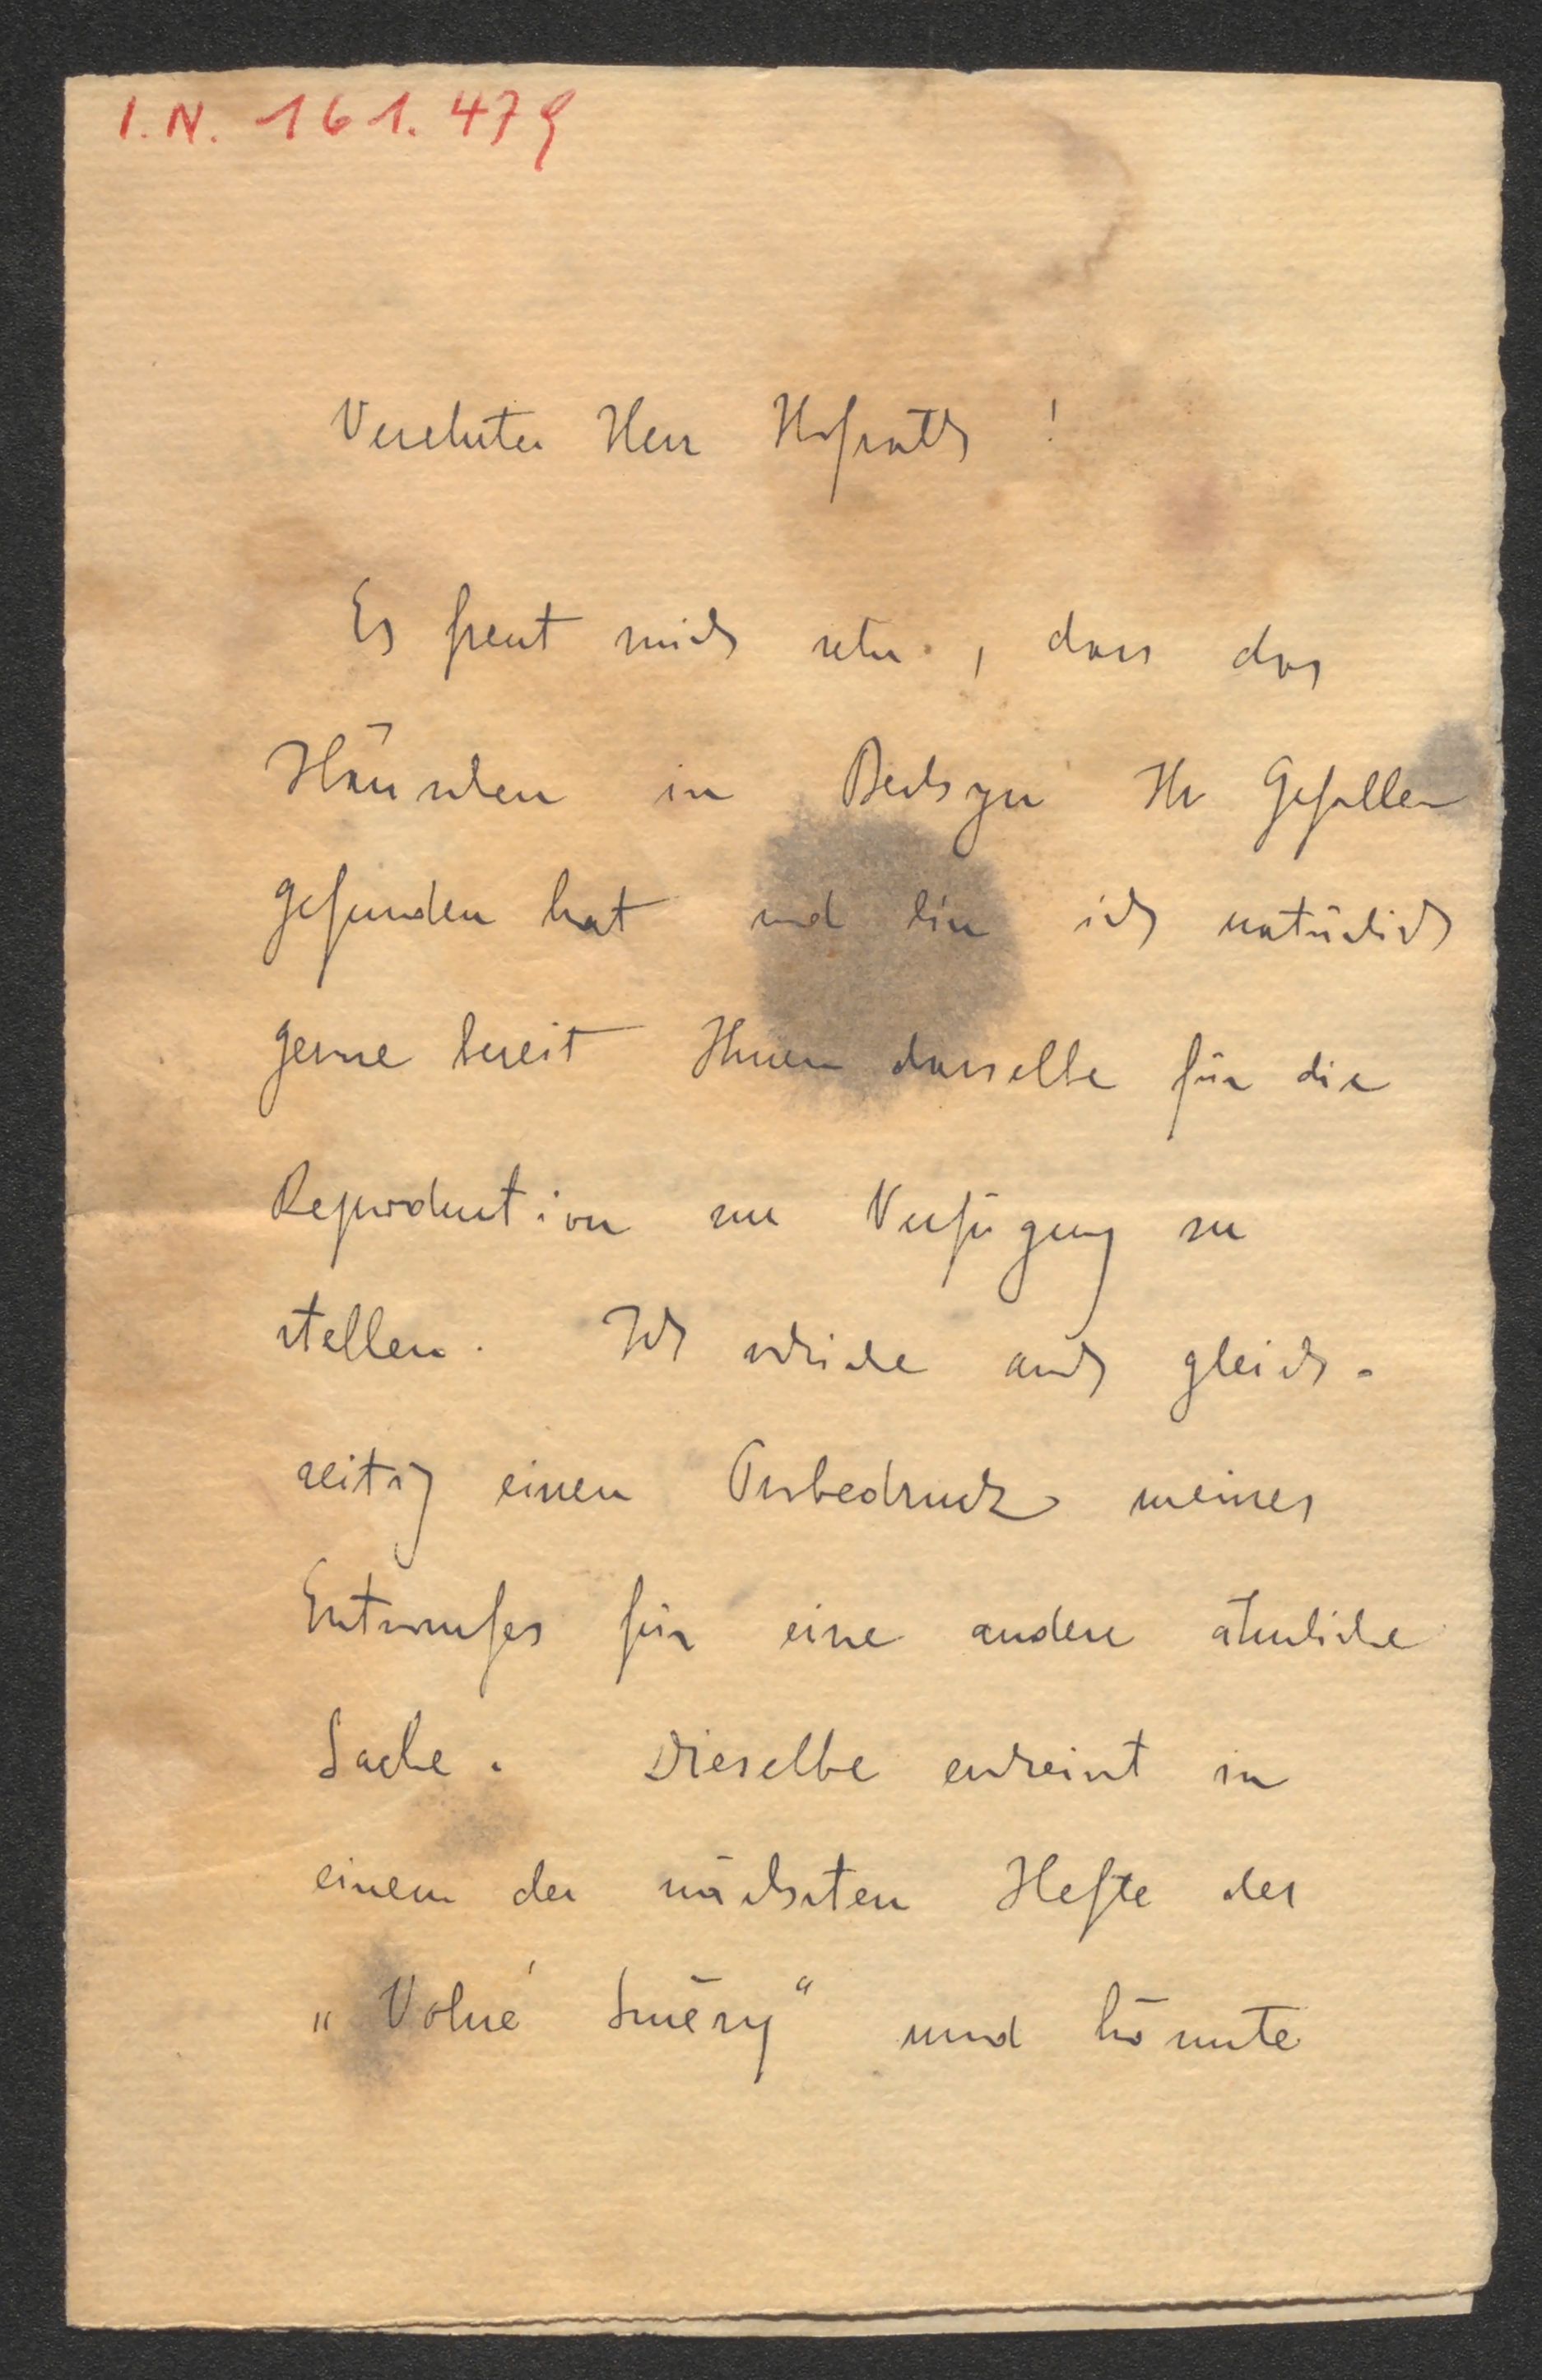 I.N. 161.479
Verehrter Herr Hofrath !
Es freut mich sehr, dass das
Häuschen in Bechyn Ihr Gefallen
gefunden hat und bin ich natürlich
gerne bereit Ihnen dasselbe für die
Reproduction zur Verfügung zu
stellen. Ich schicke auch gleich-
zeitig einen Probedruck meines
Entwurfes für eine andere ähnliche
Sache. Dieselbe erscheint in
einem der nächsten Hefte der
„Volné Směry“ und könnte